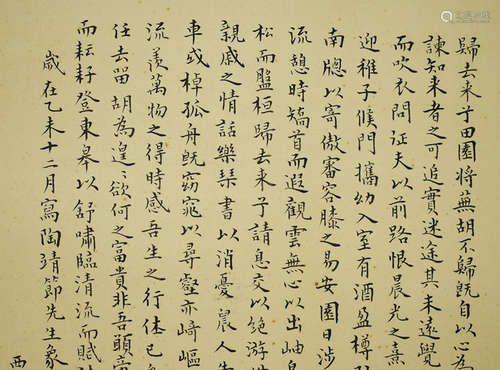 歸去来兮田園将蕪胡不歸既自以心為
諫知来者之可追實迷途其未遠覺
而吹衣問征夫以前路恨晨光之熹
迎稚子候門攜幼入室有酒盈樽
南牕以寄傲審容膝之易安園日涉
流憩時矯首而遐觀雲無心以出岫
松而盤桓歸去来兮請息交以絕游
親戚之情話樂琴書以消憂農人告
車或棹孤舟既窈窕以尋壑亦崎嶇
流羨萬物之得時感吾生之行休已
任去留胡為遑〻欲何之富貴非吾願
而耘耔登東皋以舒嘯臨清流而賦
歲在乙未十二月寫陶靖節先生象
西